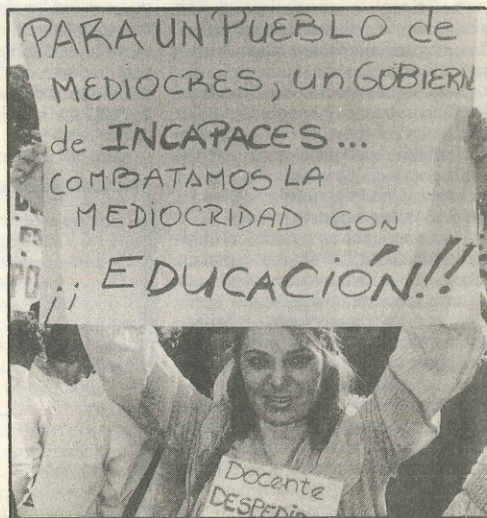 PARA UN PUEBLO de
MEDIOCRES, un GOBIERN
de INCAPACES...
COMBATAMOS LA
MEDIOCRIDAD CON
¡¡ EDUCACIÓN!!
Docente
DESPEDID